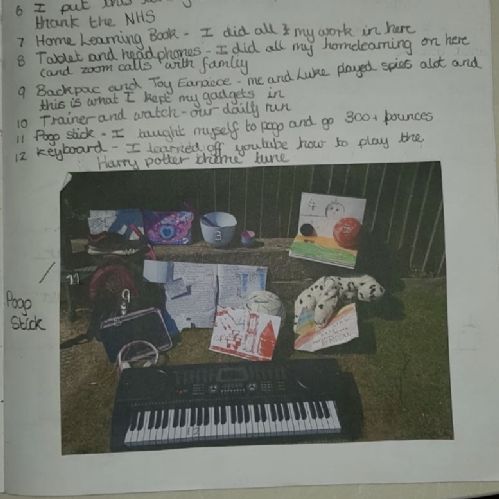 6 I put this
thank the NHS
7 Home Learning Book - I did all my work in here
8 Tablet and headphones - I did all my homelearning on here
(and zoom calls with family
9 Backpac and Toy Earpiece - me and Luke played spies alot and
this is what I kept my gadgets in
10 Trainer and watch - our daily run
11 Pogo stick - I taught myself to pogo and go 300+ bounces
12 Keyboard - I learned off youtube how to play the
Harry potter theme tune
Pogo
Stick
11
9
3
4